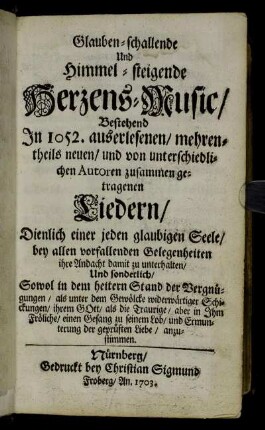 Glauben-schallende
Und
Himmel-steigende
Herzens-Music/
Bestehend
In 1052. auserlesenen/ mehren-
theils neuen/ und von unterschiedli-
chen Autoren zusammen ge-
tragenen
Liedern/
Dienlich einer jeden glaubigen Seele/
bey allen vorfallenden Gelegenheiten
ihre Andacht damit zu unterhalten/
Und sonderlich/
Sowol in dem heitern Stand der Vergnü-
gungen/ als unter dem Gewölcke widerwärtiger Schi-
ckungen/ ihrem GOtt/ als die Traurige/ aber in Ihm
Fröliche/ einen Gesang zu seinem Lob/ und Ermun-
terung der geprüften Liebe/ anzu-
stimmen.
Nürnberg/
Gedruckt bey Christian Sigmund
Froberg/ An. 1703.